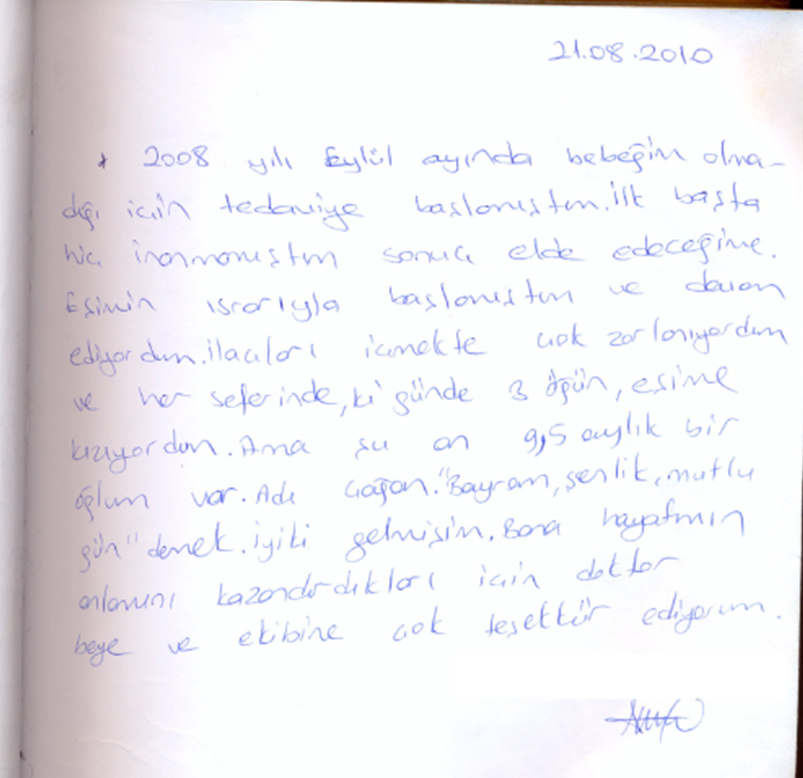 21.08.2010
* 2008 yılı Eylül ayında bebeğim olma-
dığı için tedaviye başlamıştım. İlk başta
hiç inanmamıştım sonuç elde edeceğime.
Eşimin ısrarıyla başlamıştım ve devam
ediyordum. ilaçları içmekte çok zorlanıyordum
ve her seferinde, ki günde 3 öğün, eşime
kızıyordum. Ama şu an 9,5 aylık bir
oğlum var. Adı Çağan. "Bayram, şenlik, mutlu
gün" demek. iyiki gelmişim. Bana hayatımın
anlamını kazandırdıkları için doktor
beye ve ekibine çok teşekkür ediyorum.